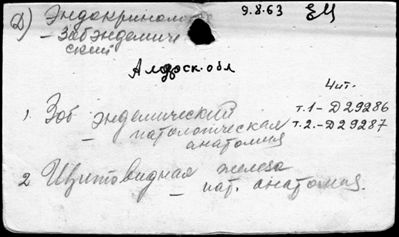 Д) Эндокринолог 9.8.63 ЕЦ
– Зоб эндемиче
ский
Амурск. обл
Чит.
1. Зоб эндемический т.1-Д29286
– патологическая т.2.-Д29287
анатомия
2 Щитовидная железа
– пат. анатомия.